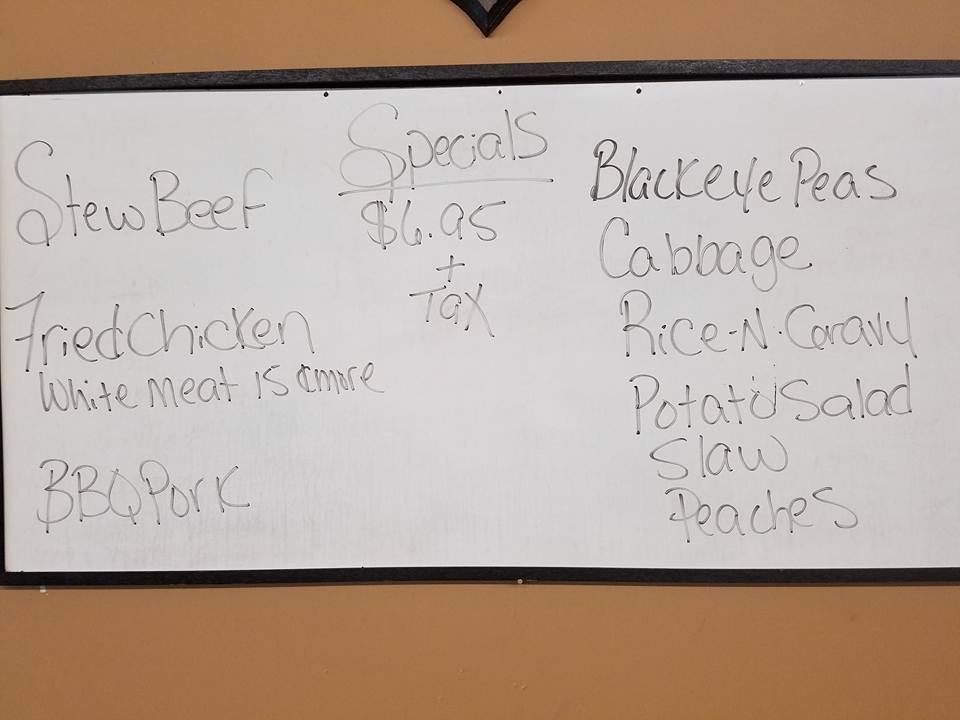 Specials
$6.95
+
Tax
Stew Beef
Fried Chicken
White meat is more
BBQ Pork
Blackeye Peas
Cabbage
Rice-N-Gravy
Potato Salad
Slaw
Peaches